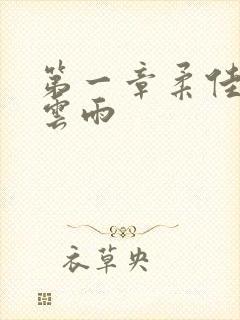 第一章柔佳
雲雨
衣草央